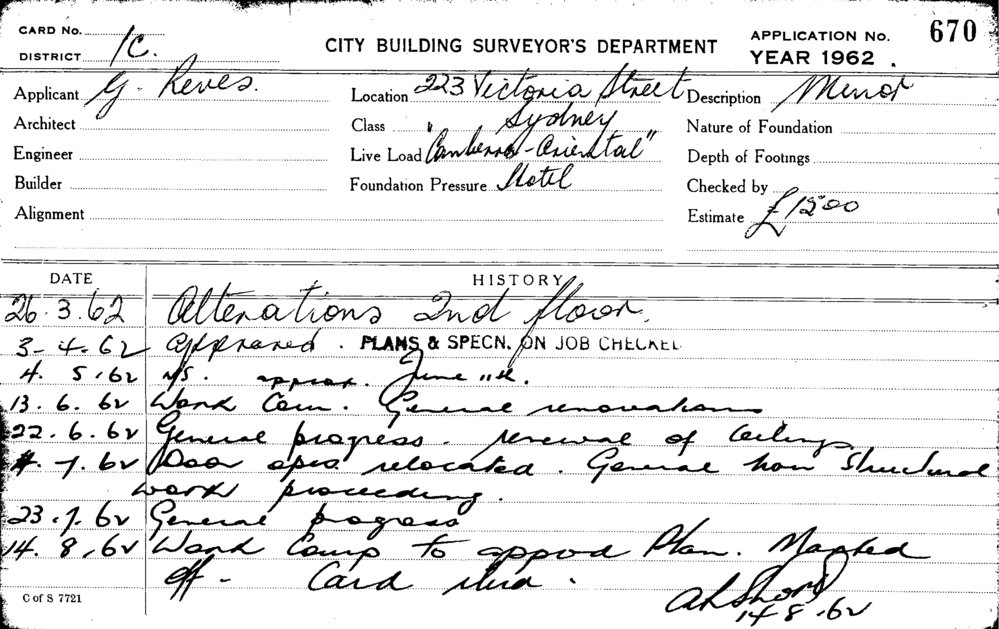 CARD No.
DISTRICT 1C.
CITY BUILDING SURVEYOR'S DEPARTMENT
APPLICATION No. 670
YEAR 1962.
Applicant G. Reves.
Architect
Engineer
Builder
Alignment
Location 223 Victoria Street
Class Sydney
Live Load "Canberra-Oriental"
Foundation Pressure Hotel
Description Minor
Nature of Foundation
Depth of Footings
Checked by
Estimate £1200
DATE HISTORY
26.3.62 Alterations 2nd floor.
3-4-62 Approved. PLANS & SPECN. ON JOB CHECKED
4.5.62 N/S. approx. June 11th.
13.6.62 Work Com. General renovations
22.6.62 General progress. renewal of Ceilings
4.7.62 Door opes. relocated. General non Structural
work proceeding.
23.7.62 General progress
14.8.62 Work Comp to approd Plan. Mapped
off - Card
14.8.62
C of S 7721